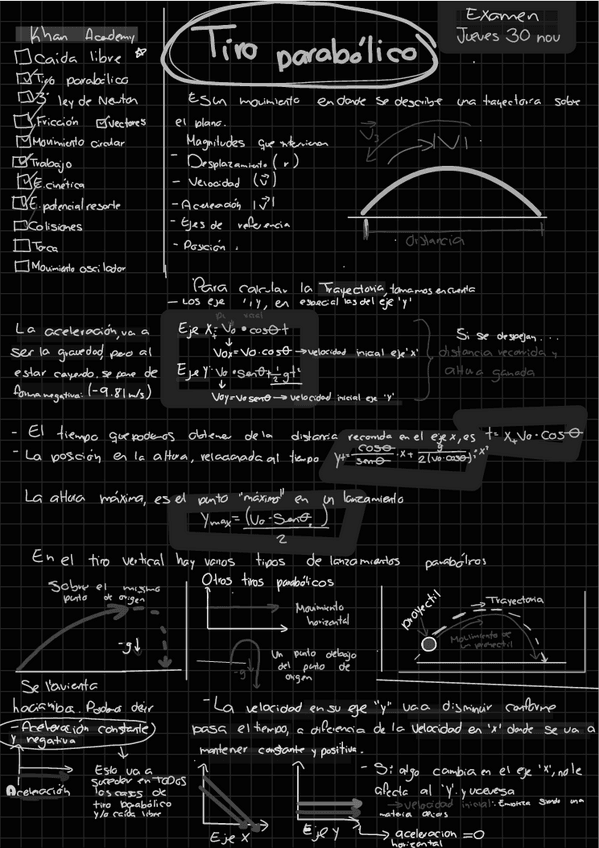 Examen
Jueves 30 nov
Tiro parabólico
Khan Academy
Caida libre
Tiro parabólico
3ª ley de Newton
Fricción
Vectores
Movimiento circular
Trabajo
E. cinética
E. potencial resorte
Colisiones
Movimiento oscilador
Es un movimiento en donde se describe una trayectoria sobre
el plano.
Magnitudes que intervienen
- Desplazamiento (r)
- Velocidad (v⃗)
- Aceleración |v⃗|
- Ejes de referencia
- Posición.
|V|
distancia
Para calcular la Trayectoria, tomamos en cuenta
- Los eje 'x', en especial los del eje 'y'
La aceleración, va a
ser la gravedad, pero al
estar cayendo, se pone de
forma negativa: (-9.81 m/s)
Eje X: Vo • cosθ t
↓
Vox = Vo·cosθ → velocidad inicial eje 'x'
Eje Y: Vo • senθ + 1/2 gt²
↓
Voy = Vo senθ → velocidad inicial eje 'y'
Si se despejan...
distancia recorrida y
altura ganada
- El tiempo que podemos obtener de la distancia recorrida en el eje x, es t = X + Vo · Cosθ
- La posción en la altura, relacionada al tiempo y = cosθ/senθ · x + g/2(Vo·cosθ)² · x²
La altura máxima, es el punto "máximo" en un lanzamiento
Ymax = (Vo · Senθ)/2
En el tiro vertical hay varios tipos de lanzamientos parabólicos
Sobre el mismo
punto de origen
-g↓
Otros tiros parabólicos
Movimiento
horizontal
Un punto debajo
del punto de
origen
-g↓
proyectil
Trayectoria
Movimiento de
un proyectil
hacia arriba. Podemos decir
- Aceleración constante
y negativa
Aceleración
Esto va a
suceder en TODOS
los casos de
tiro parabólico
y/o caida libre
- La velocidad en su eje "y" va a disminuir conforme
pasa el tiempo, a diferencia de la velocidad en 'x' donde se va a
mantener constante y positiva.
Eje X
Eje Y
- Si algo cambia en el eje 'X', no le
afecta al 'Y' y viceversa
→ velocidad inicial: Empieza siendo una
→ aceleracion = 0
horizontal